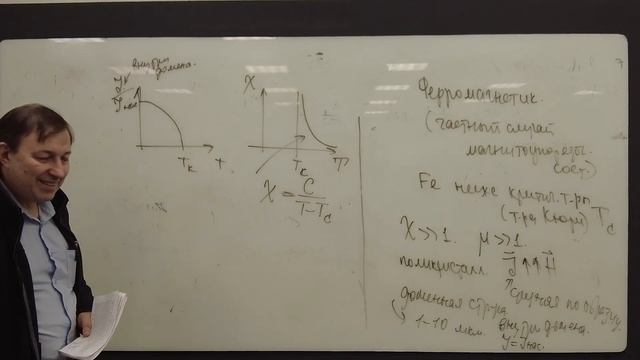 J внутри домена.
J нас
Tк
T
χ
Tc
T
χ = C / T - Tc
Ферромагнетик.
(частный случай
магнитоупорядоч.
сост.)
Fe ниже критич. т-ры Tc
(т-ра Кюри)
χ>>1. μ>>1.
поликристалл. J ↑↑ H
случая по образцу
доменная стр-ра
1-10 мкм. внутри домена.
J = J нас.